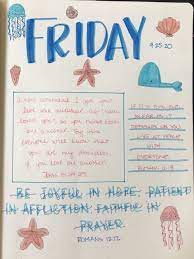 FRIDAY
9.25.20
a new command I give you:
love one another. as I have
loved you, so you must love
one another. By this
everyone will know that
you are my disciples
if you love one another.
John 13:34-35
IF IT IS POSSIBLE,
AS FAR AS IT
DEPENDS ON YOU
LIVE AT PEACE
WITH
EVERYONE.
ROMANS 12:18
BE JOYFUL IN HOPE, PATIENT
IN AFFLICTION, FAITHFUL IN
PRAYER.
ROMANS 12:12